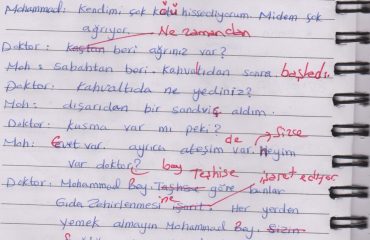 Mohammad: Kendimi çok kötü hissediyorum. Midem çok
ağrıyor. Ne zamandan
Doktor: Kaçtan beri ağrınız var?
Moh: Sabahtan beri. Kahvaltıdan sonra başladı.
Doktor: Kahvaltıda ne yediniz?
Moh: dışarıdan bir sandviç aldım.
Doktor: kusma var mı peki? Sizce
Moh: Evet var. ayrıca ateşim de var. Neyim
var doktor bey? Teşhise işaret ediyor.
Doktor: Mohammad Bey. Teşhise göre bunlar
Gıda Zehirlenmesi'ne işaret. Her yerden
yemek almayın Mohammad Bey. Sizin